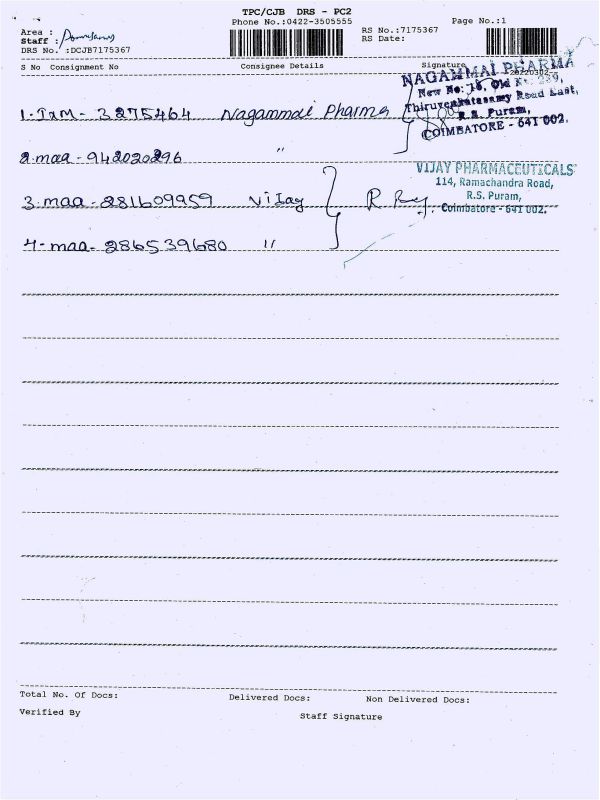 TPC/CJB DRS - PC2
Phone No.:0422-3505555
Page No.:1
Area :
Staff :
RS No.:7175367
RS Date:
DRS No. :DCJB7175367
S No Consignment No Consignee Details Signature
20220302
NAGAMMAI PHARMA
New No: 16, Old No. 239,
Thiruvenkatasamy Road East,
R.S. Puram,
COIMBATORE - 641 002.
1. TxM - 3275464 Nagammai Pharma
2. maa - 942020296 "
VIJAY PHARMACEUTICALS
114, Ramachandra Road,
R.S. Puram,
Coimbatore - 641 002.
3. maa - 281609959 Vijay
4. maa - 286539680 "
Total No. Of Docs: Delivered Docs: Non Delivered Docs:
Verified By
Staff Signature